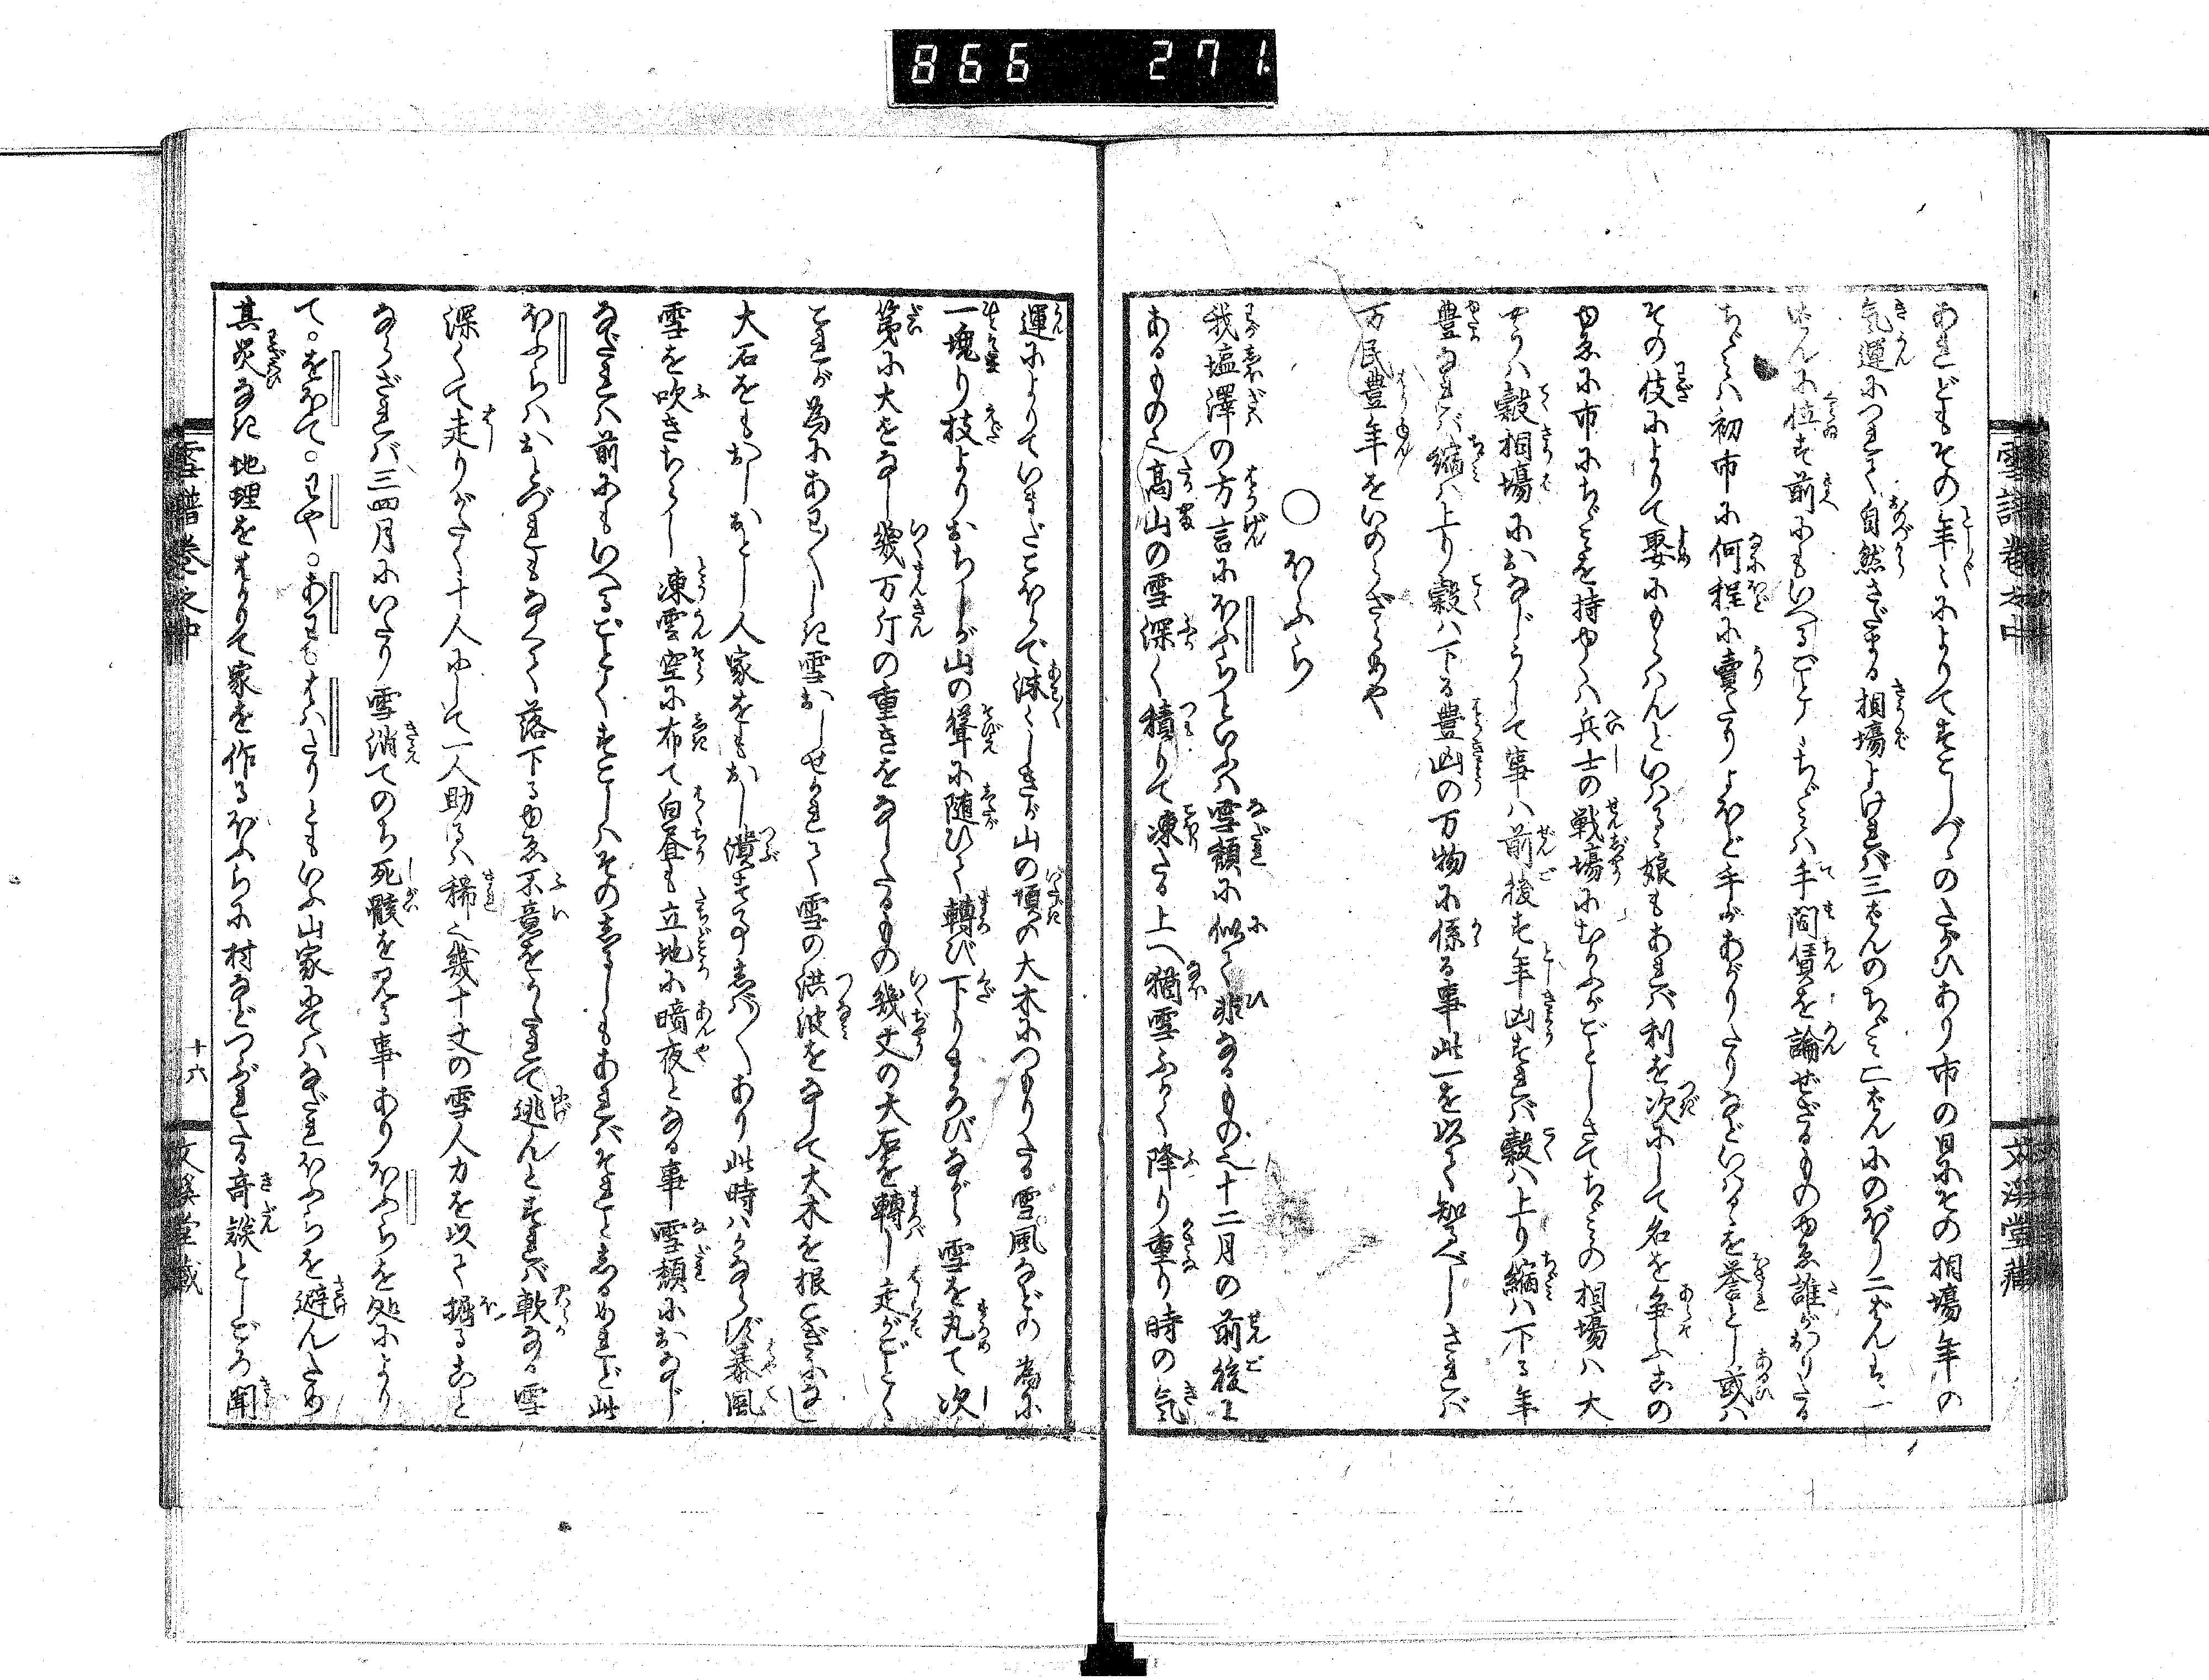 866 271.
雪譜巻之中
文溪堂藏
あれどもその年々によりてすこしづゝのたがひあり市の日にその相場年の
気運につれて自然さだまる相場よければ三ばんのちゞみ二ばんにのぼり二ばんは一
ばんに位す前にもいへるごとくちゞみは手間賃を論ぜざるものゆゑ誰がおりたる
ちゞみは初市に何程に賣たりよほど手があがりたりなどいはるゝを誉とし或は
その技によりて娶にもらはんといはるゝ娘もあれば利を次にして名を争ふこの
ゆゑに市にちゞみを持ゆくは兵士の戦場にむかふがごとしさてちゞみの相場は大
やうは穀相場におなじうして事は前後す年凶すれば穀は上り縮は下る年
豊なれば縮は上り穀は下る豊凶の万物に係る事此一を以て知るべしされば
万民豊年をいのらざらめや
○ほふら
我塩澤の方言にほふらといふは雪頽に似て非なるもの也十二月の前後に
あるもの也高山の雪深く積りて凍たる上へ猶雪ふかく降り重り時の気
運によりていまだこほらで沫々しきが山の頂の大木につもりたる雪風などの為に
一塊り枝よりおちしが山の聳に随ひて轉び下りまろびながら雪を丸て次
第に大をなし幾万斤の重きをなしたるもの幾丈の大石を轉し走がごとく
これが為にあわ〳〵しき雪おしせかれて雪の洪波をなして大木を根こぎになし
大石をもおしおとし人家をもおし潰す事しば〳〵あり此時はかならず暴風
雪を吹きちらし凍雲空に布て白昼も立地に暗夜となる事雪頽におなじ
なだれは前にもいへるごとくすこしはその志るしもあればそれと志るめれど此
ほふらはおとづれもなくて落下るゆゑ不意をうたれて逃んとすれば軟なる雪
深くて走りがたく十人にして一人助るは稀也幾十丈の雪人力を以て掘ること
ならざれば三四月にいたり雪消てのち死骸を見る事ありほふらを処により
て。をほて。わや。あわ。ははたりともいふ山家にてはなだれほふらを避んため
其災なき地理をはかりて家を作るほふらに村などつぶれたる奇談としごろ聞
雪譜巻之中
十六
文溪堂藏